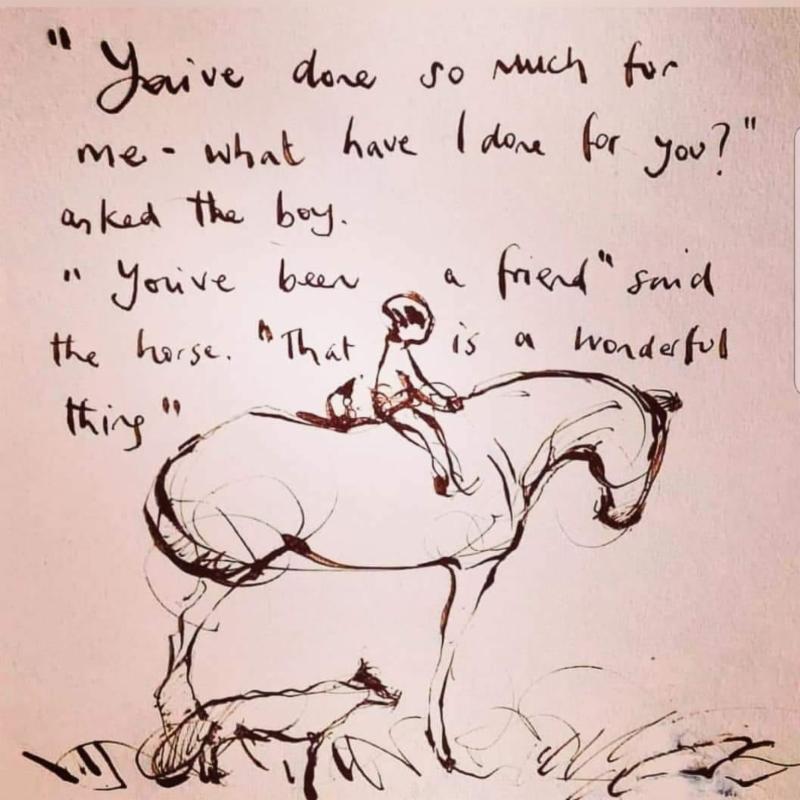 "You've done so much for
me - what have I done for you?"
asked the boy.
"You've been a friend" said
the horse. "That is a wonderful
thing"